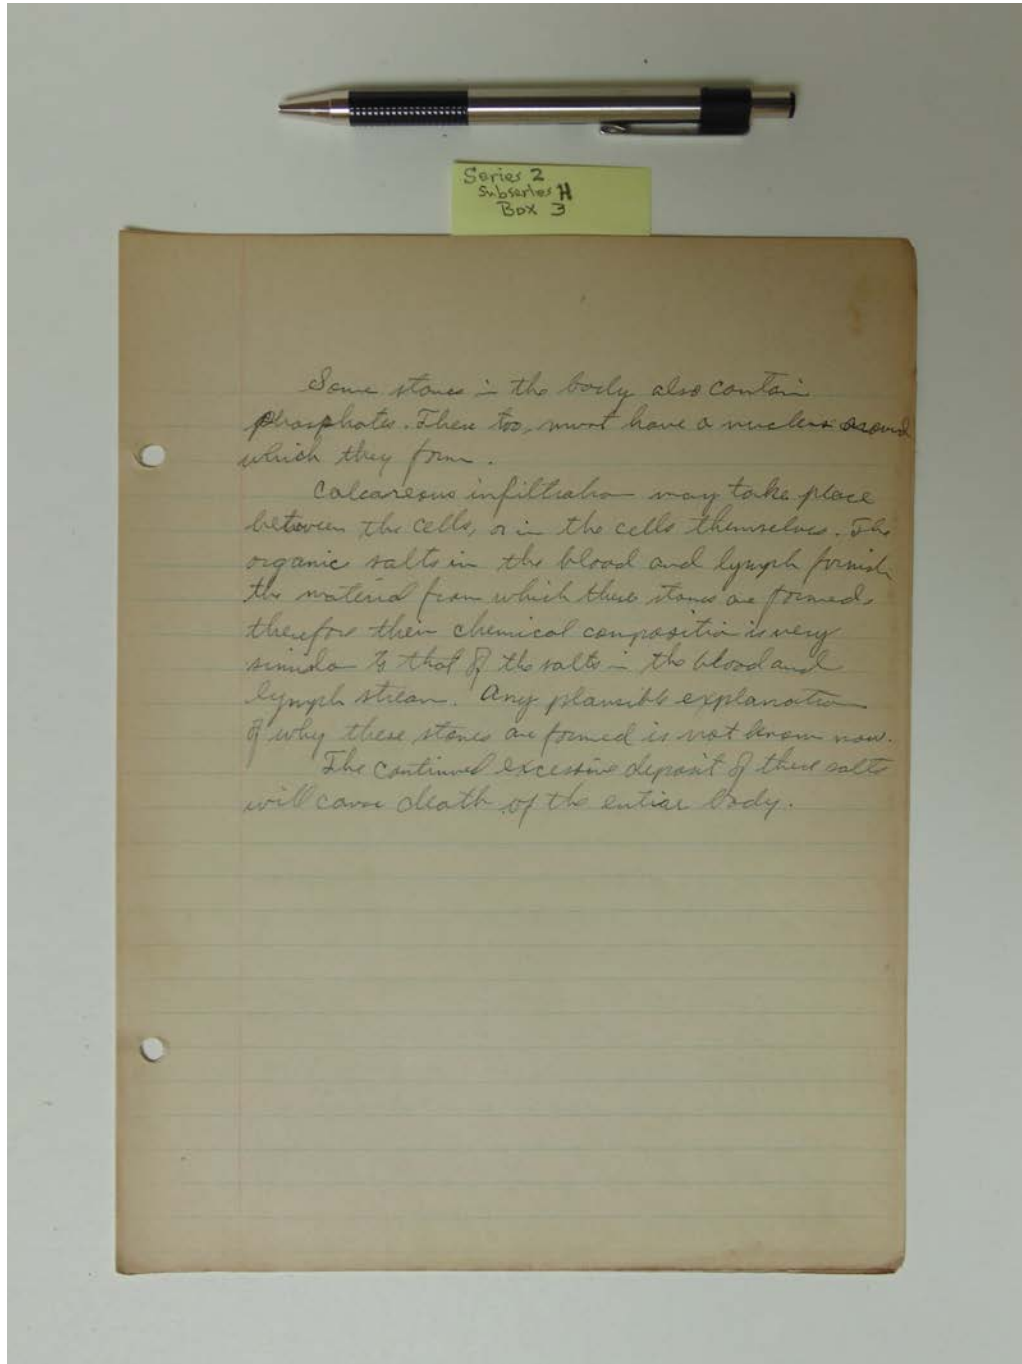 Series 2
Subseries H
Box 3
Some stones in the body also contain
phosphates. These too, must have a nucleus around
which they form.
Calcareous infiltration may take place
between the cells, or in the cells themselves. The
organic salts in the blood and lymph furnish
the material from which these stones are formed,
therefore their chemical composition is very
similar to that of the salts in the blood and
lymph stream. Any plausible explanation
of why these stones are formed is not known now.
The continued excessive deposit of these salts
will cause death of the entiar body.